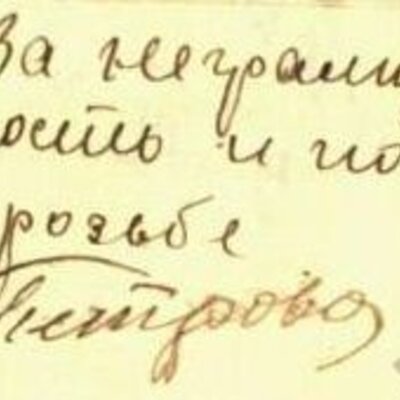 За неграм
ость и по
розьбе
Петрова